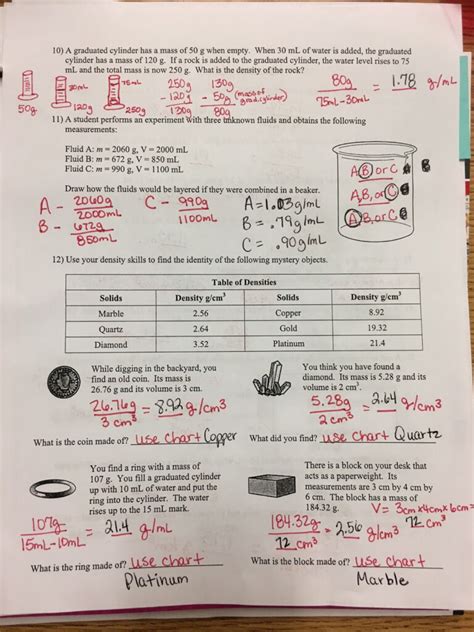 10) A graduated cylinder has a mass of 50 g when empty. When 30 mL of water is added, the graduated
cylinder has a mass of 120 g. If a rock is added to the graduated cylinder, the water level rises to 75
mL and the total mass is now 250 g. What is the density of the rock?
50g
30mL
120g
75mL
250g
250g
- 120g
130g
130g
- 50g (mass of grad.cylinder)
80g
80g
75mL-30mL
= 1.78 g/mL
11) A student performs an experiment with three unknown fluids and obtains the following
measurements:
Fluid A: m = 2060 g, V = 2000 mL
Fluid B: m = 672 g, V = 850 mL
Fluid C: m = 990 g, V = 1100 mL
Draw how the fluids would be layered if they were combined in a beaker.
A - 2060g
2000mL
B - 672g
850mL
C - 990g
1100mL
A=1.03g/mL
B = .79g/mL
C = .90g/mL
A,B, or C
B
A,B, or C
A,B, or C
12) Use your density skills to find the identity of the following mystery objects.
Table of Densities
Solids Density g/cm³ Solids Density g/cm³
Marble 2.56 Copper 8.92
Quartz 2.64 Gold 19.32
Diamond 3.52 Platinum 21.4
While digging in the backyard, you
find an old coin. Its mass is
26.76 g and its volume is 3 cm.
26.76g
3 cm³
= 8.92 g/cm3
What is the coin made of? use chart Copper
You think you have found a
diamond. Its mass is 5.28 g and its
volume is 2 cm³.
5.28g
2 cm³
= 2.64 g/cm3
What did you find? use chart Quartz
You find a ring with a mass of
107 g. You fill a graduated cylinder
up with 10 mL of water and put the
ring into the cylinder. The water
rises up to the 15 mL mark.
107g
15mL-10mL
= 21.4 g/mL
What is the ring made of? use chart
Platinum
There is a block on your desk that
acts as a paperweight. Its
measurements are 3 cm by 4 cm by
6 cm. The block has a mass of
184.32 g.
V = 3cm x 4cm x 6cm =
72 cm³
184.32g
72 cm³
= 2.56 g/cm3
What is the block made of? use chart
Marble